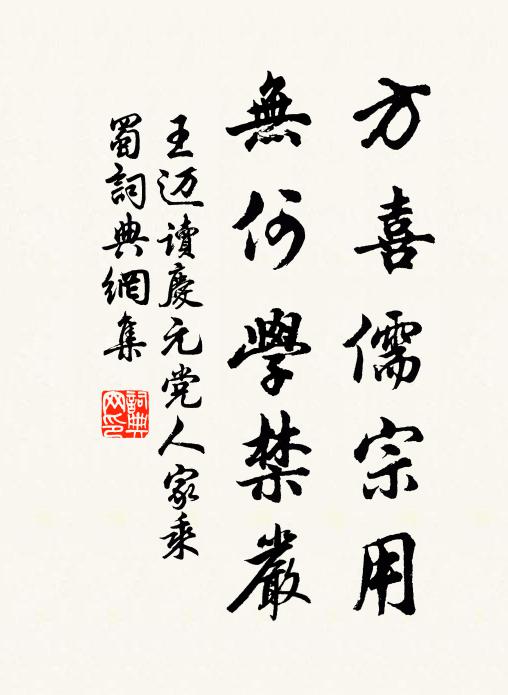 方喜儒宗用
無何學禁嚴
王迈讀慶元党人家乘
蜀詞典網集
詞典
网印